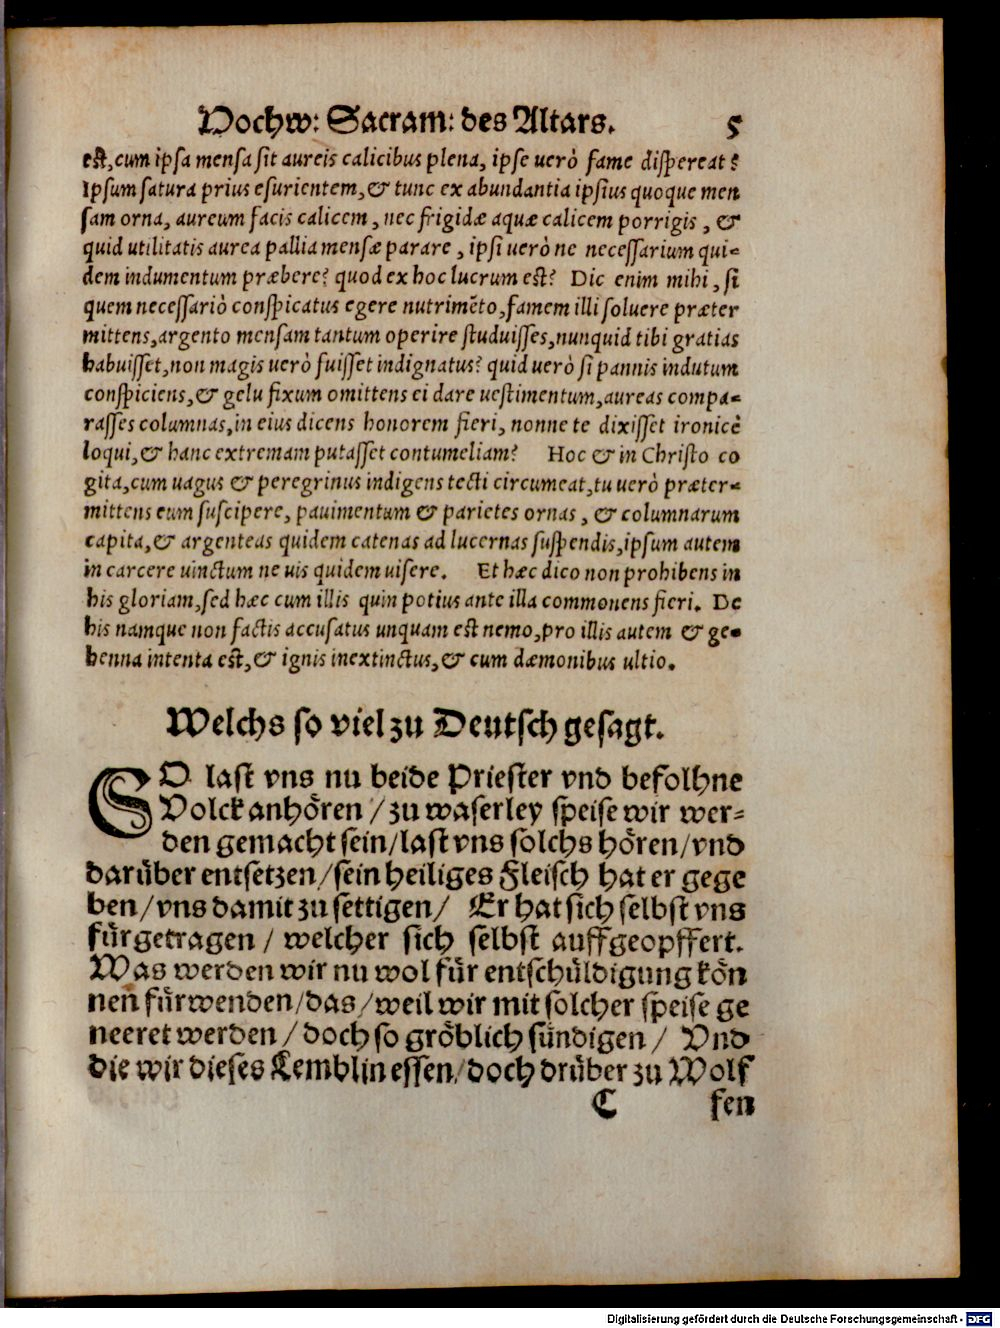 Hochw: Sacram: des Altars. 5
est, cum ipsa mensa sit aureis calicibus plena, ipse uerò fame dispereat?
Ipsum satura prius esurientem, & tunc ex abundantia ipsius quoque men
sam orna, aureum facis calicem, nec frigidæ aquæ calicem porrigis, &
quid utilitatis aurea pallia mensæ parare, ipsi uerò ne necessarium qui-
dem indumentum præbere? quod ex hoc lucrum est? Dic enim mihi, si
quem necessariò conspicatus egere nutrimẽto, famem illi soluere præter
mittens, argento mensam tantum operire studuisses, nunquid tibi gratias
habuisset, non magis uerò fuisset indignatus? quid uerò si pannis indutum
conspiciens, & gelu fixum omittens ei dare uestimentum, aureas compa-
rasses columnas, in eius dicens honorem fieri, nonne te dixisset ironicè
loqui, & hanc extremam putasset contumeliam? Hoc & in Christo co
gita, cum uagus & peregrinus indigens tecti circumeat, tu uerò præter-
mittens eum suscipere, pauimentum & parietes ornas, & columnarum
capita, & argenteas quidem catenas ad lucernas suspendis, ipsum autem
in carcere uinctum ne uis quidem uisere. Et hæc dico non prohibens in
his gloriam, sed hæc cum illis quin potius ante illa commonens fieri. De
his namque non factis accusatus unquam est nemo, pro illis autem & ge-
henna intenta est, & ignis inextinctus, & cum dæmonibus ultio.
Welchs so viel zu Deutsch gesagt.
SO last vns nu beide Priester vnd befolhne
Volck anhören / zu waserley speise wir wer-
den gemacht sein/ last vns solchs hören/ vnd
darüber entsetzen/ sein heiliges Fleisch hat er gege
ben/ vns damit zu settigen/ Er hat sich selbst vns
fürgetragen / welcher sich selbst auffgeopffert.
Was werden wir nu wol für entschüldigung kön
nen fürwenden/ das/ weil wir mit solcher speise ge
neeret werden / doch so gröblich sündigen / Vnd
die wir dieses Lemblin essen/ doch drüber zu Wolf
C fen
Digitalisierung gefördert durch die Deutsche Forschungsgemeinschaft - DFG